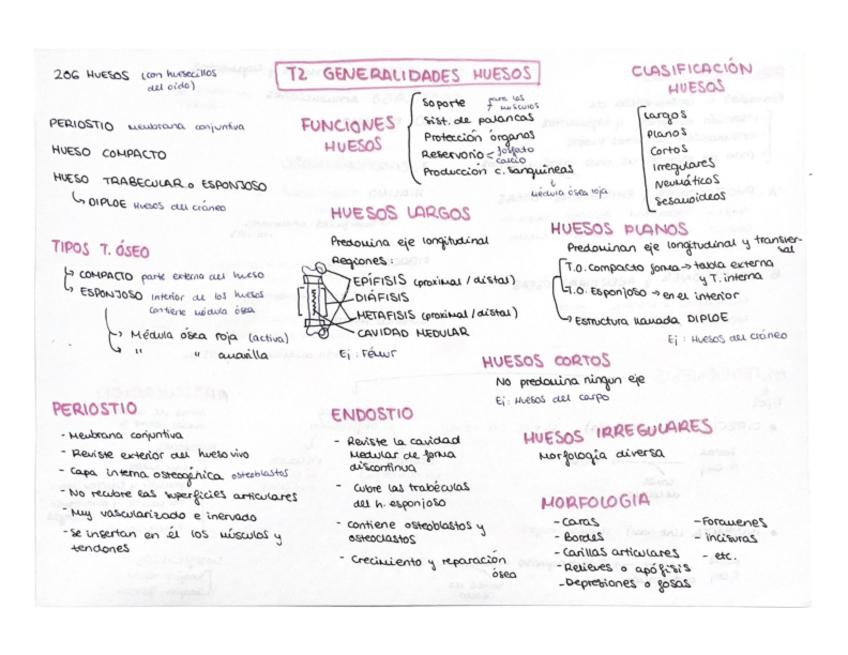 T2 GENERALIDADES HUESOS
206 HUESOS (con huesecillos
del oído)
PERIOSTIO membrana conjuntiva
HUESO COMPACTO
HUESO TRABECULAR o ESPONJOSO
↳ DIPLOE Huesos del cráneo
FUNCIONES
HUESOS
Soporte para los
músculos
Sist. de palancas
Protección órganos
Reservorio < fosfato
calcio
Producción c. sanguíneas
↓
médula ósea roja
CLASIFICACIÓN
HUESOS
Largos
Planos
Cortos
Irregulares
Neumáticos
Sesamoideos
TIPOS T. ÓSEO
↳ COMPACTO parte externa del hueso
↳ ESPONJOSO interior de los huesos
contiene médula ósea
↳ Médula ósea roja (activa)
↳ " " amarilla
HUESOS LARGOS
Predomina eje longitudinal
Regiones:
EPÍFISIS (proximal / distal)
DIÁFISIS
METAFISIS (proximal / distal)
CAVIDAD MEDULAR
Ej: Fémur
HUESOS PLANOS
Predominan eje longitudinal y transver-
sal
T.O. compacto forma → tabla externa
y T. interna
T.O. Esponjoso → en el interior
→ Estructura llamada DIPLOE
Ej: Huesos del cráneo
HUESOS CORTOS
No predomina ningun eje
Ej: Huesos del carpo
PERIOSTIO
- Membrana conjuntiva
- Reviste exterior del hueso vivo
- Capa interna osteogénica osteoblastos
- No recubre las superficies articulares
- Muy vascularizado e inervado
- Se insertan en él los músculos y
tendones
ENDOSTIO
- Reviste la cavidad
Medular de forma
discontinua
- Cubre las trabéculas
del h. esponjoso
- Contiene osteoblastos y
osteoclastos
- Crecimiento y reparación
ósea
HUESOS IRREGULARES
Morfología diversa
MORFOLOGIA
- Caras
- Bordes
- Carillas articulares
- Relieves o apófisis
- Depresiones o fosas
- Foramenes
- incisuras
- etc.